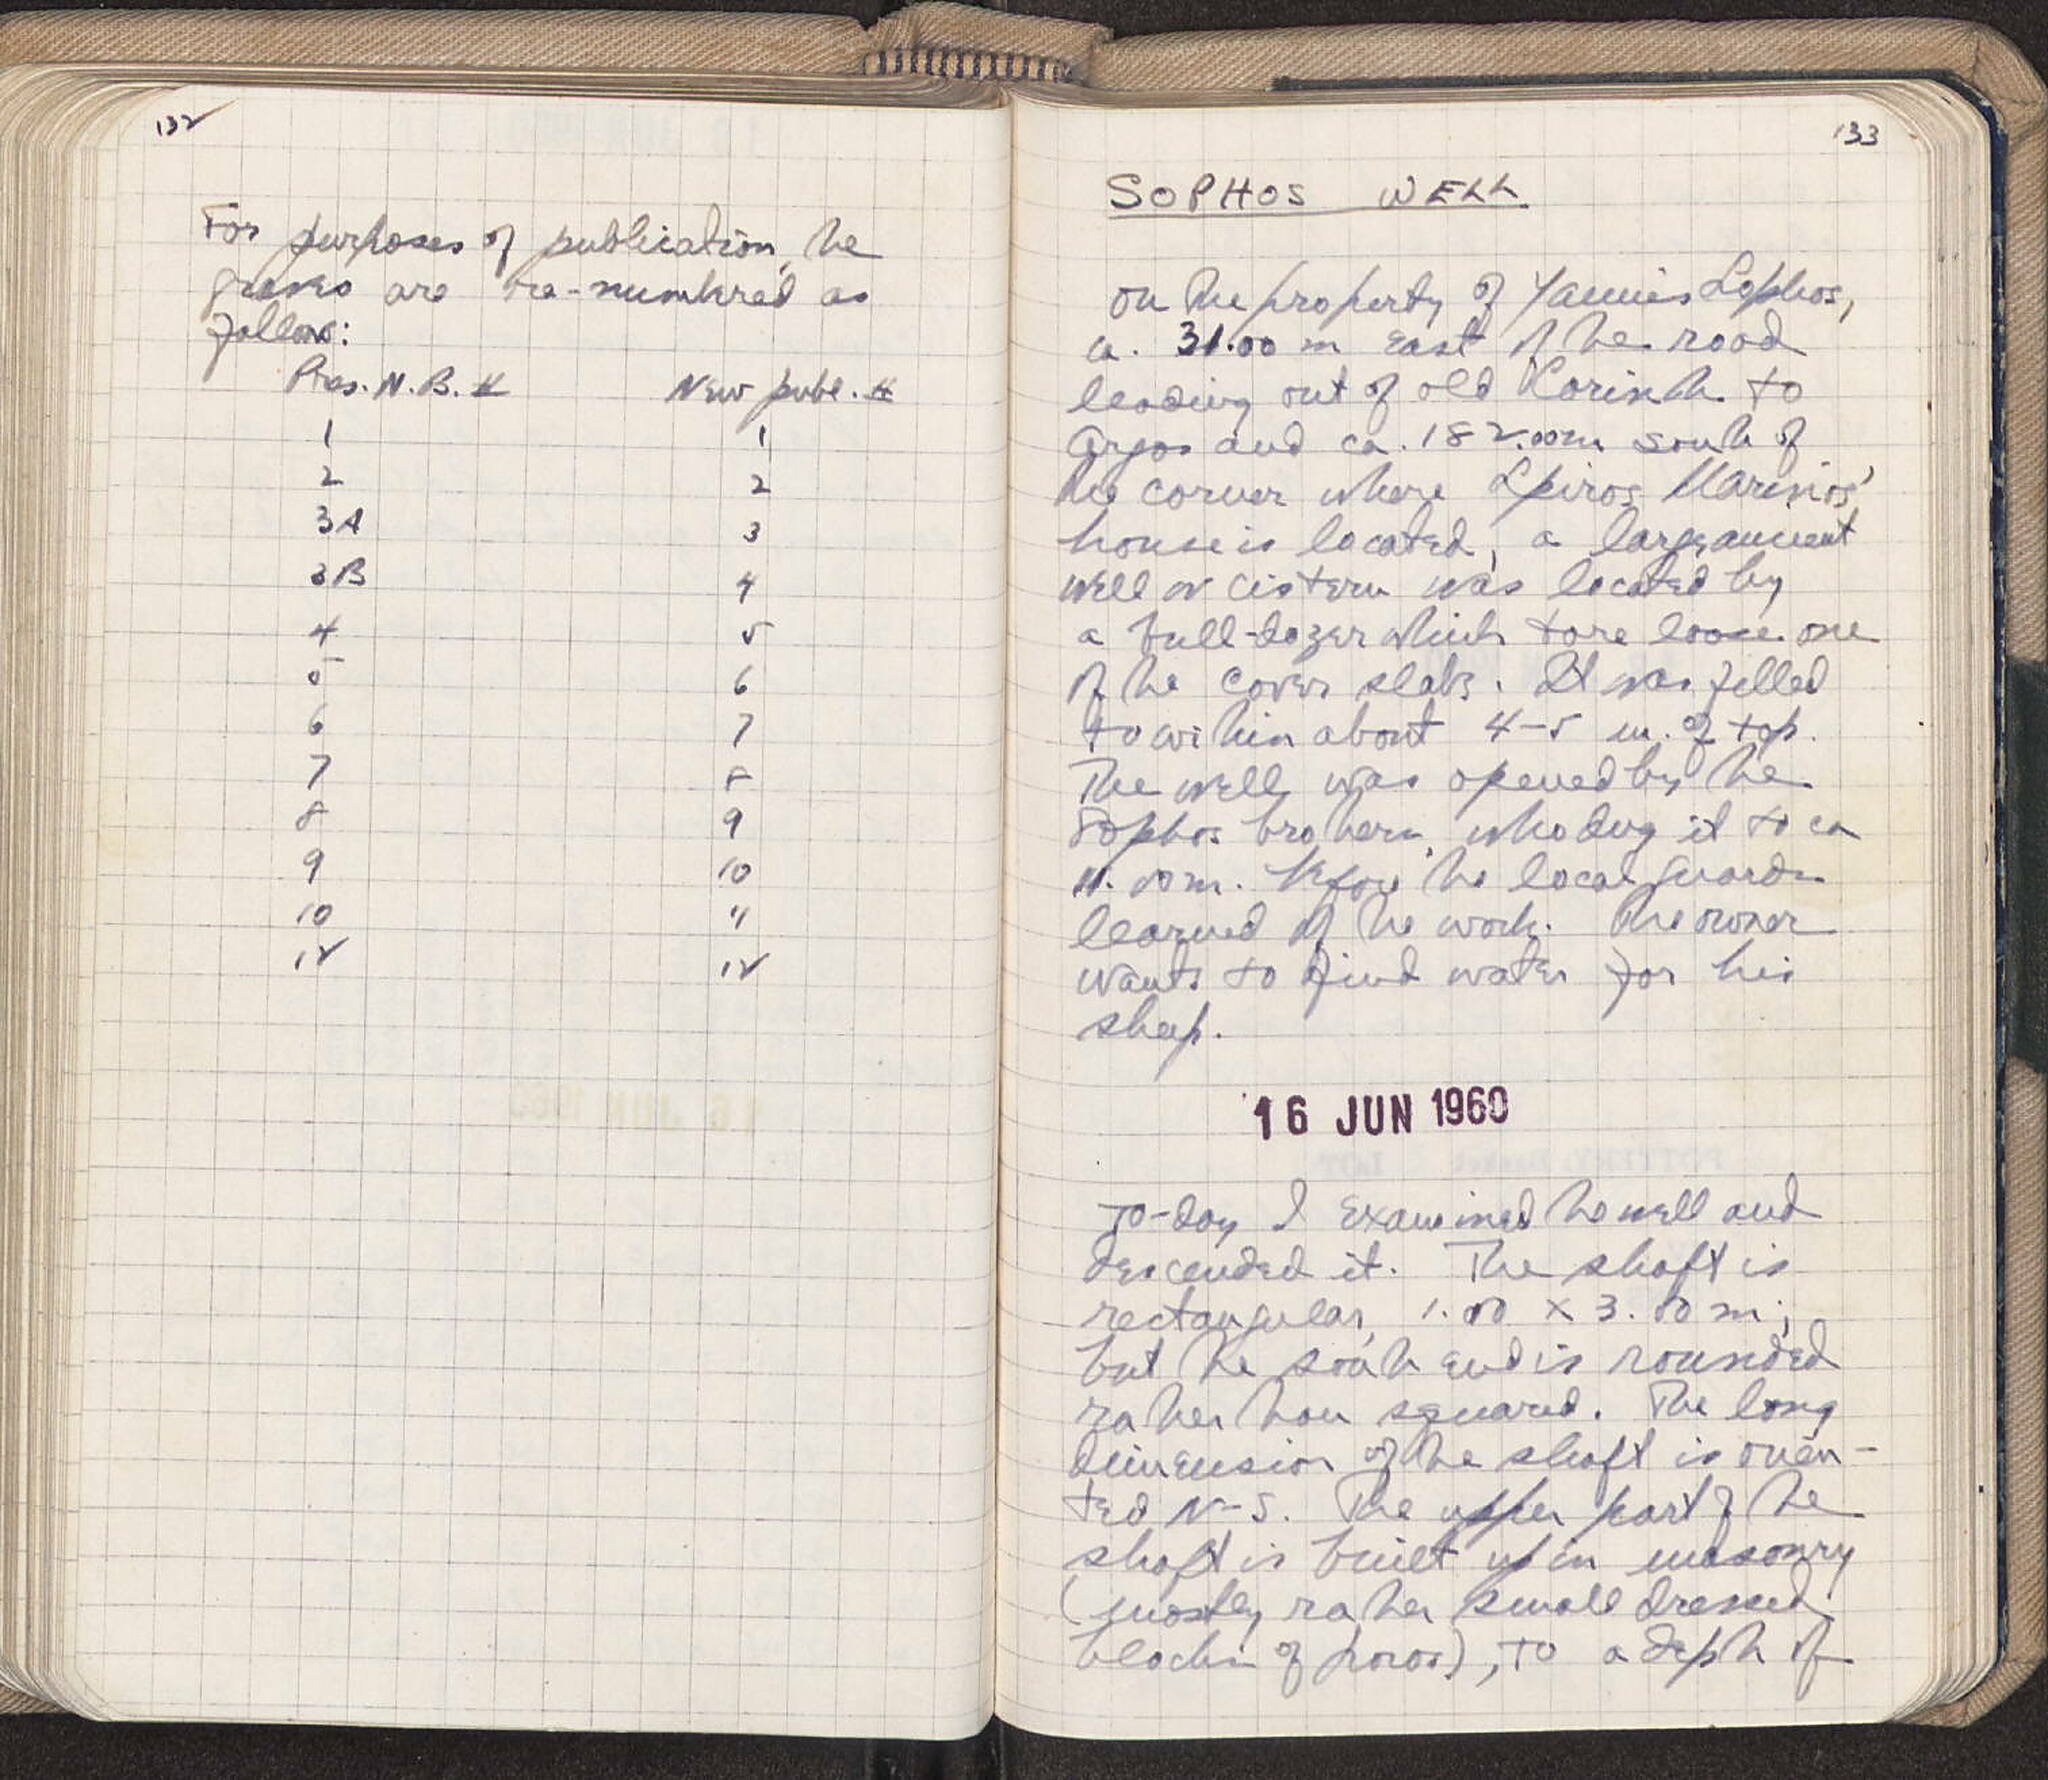 132
For purposes of publication, the
graves are re-numbered as
follows:
Pres. N.B. # New publ. #
1 1
2 2
3A 3
3B 4
4 5
5 6
6 7
7 8
8 9
9 10
10 11
12 12
133
SOPHOS WELL
On the property of Yannis Sophos,
ca. 31.00 m east of the road
leading out of old Korinth to
Argos and ca. 182.00m south of
the corner where Spiros Marinos'
house is located, a large ancient
well or cistern was located by
a bull-dozer which tore loose one
of the cover slabs. It was filled
to within about 4-5 m. of top.
The well was opened by the
Sophos brothers, who dug it to ca
11.00m. before the local guards
learned of the work. The owner
wants to find water for his
sheep.
16 JUN 1960
To-day I examined the well and
descended it. The shaft is
rectangular, 1.00 x 3.00 m;
but the south end is rounded
rather than squared. The long
dimension of the shaft is orien-
ted N-S. The upper part of the
shaft is built up in masonry
(mostly rather small dressed
blocks of poros), to a depth of